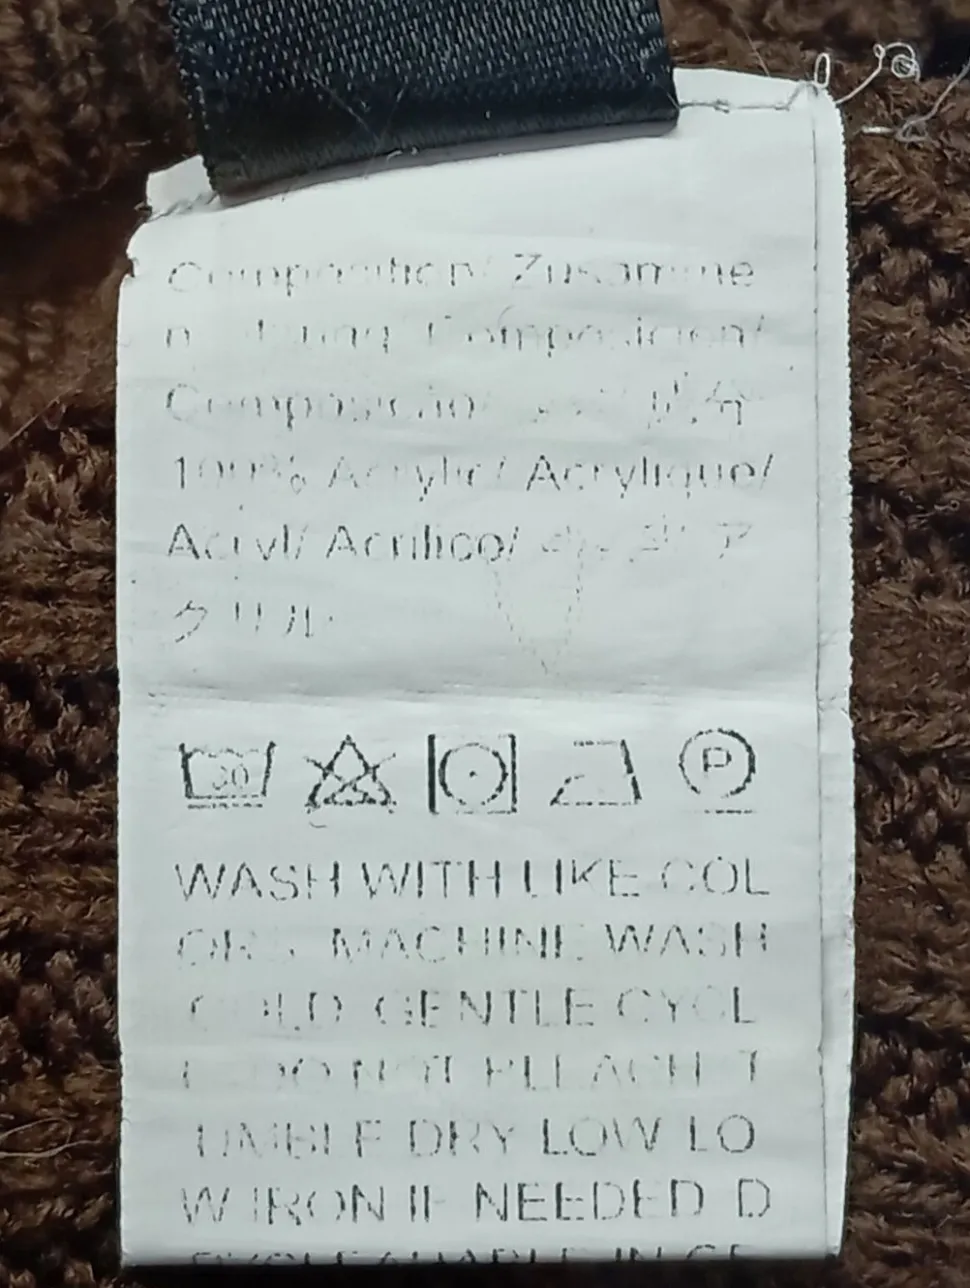 Composition/ Zusamme
Composicion/
Composição/
100% Acrylic/ Acrylique/
Acryl/ Acrilico/ ア
クリル
30
P
WASH WITH LIKE COL
ORS MACHINE WASH
COLD GENTLE CYCL
E DO NOT BLEACH T
UMBLE DRY LOW LO
W IRON IF NEEDED D